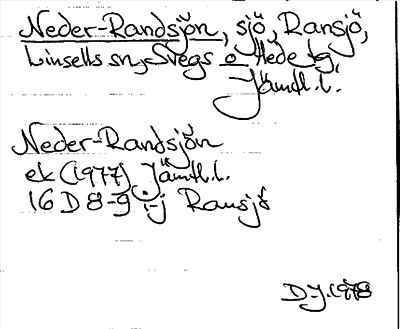 Neder-Randsjön, sjö, Ransjö,
Linsells sn, Svegs o Hede tg
Jämtl.l.
Neder-Randsjön
ek (1977) Jämtl.l.
16 D 8-9 i-j Ransjö
D-J.1978